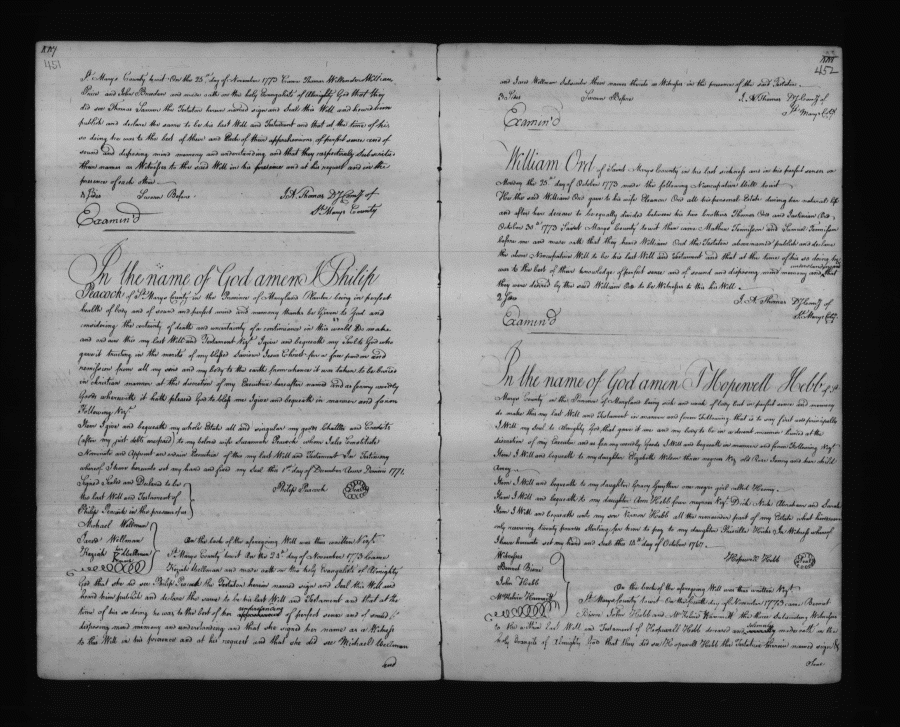 451
St. Marys County to wit On the 23d day of November 1773 Came Thomas Wilkinson William
Price and John and made oath on the holy Evangelists of Almighty God that they
did see Thomas the Testator herein named sign and Seal this Will and heard him
publish and declare the same to be his last Will and Testament and that at the time of his
so doing he was to the best of their and Each of their apprehensions of perfect sense and of
sound and disposing mind memory and understanding and that they respectively Subscribed
their names as Witnesses to the said Will in his presence and at his request and in the
presence of each other
Sworn Before J. A. Thomas Dy Comry of
St. Marys County
Examin'd
In the name of God amen I Philip
Peacock of St. Marys County in the Province of Maryland being in perfect
health of body and of sound and perfect mind and memory thanks be Given to God and
considering the certainty of death and uncertainty of a continuance in this world Do make
and ordain this my last Will and Testament Vizt. I give and bequeath my Soul to God who
gave it trusting in the merits of my blessed Saviour Jesus Christ for a free pardon and
remission from all my sins and my body to the earth from whence it was taken to be buried
in christian manner at the discretion of my Executrix hereafter named and as for my worldly
Goods wherewith it hath pleased God to bless me I give and bequeath in manner and form
Following Vizt.
Item I give and bequeath my whole Estate all and singular my goods Chattles and Credits
(after my just debts are paid) to my beloved wife Susannah Peacock whom I also Constitute
Nominate and Appoint Executrix of this my last Will and Testament In Testimony
whereof I have hereunto set my hand and fixed my Seal this 1st day of December Anno Domini 1771.
Signed Sealed and Declared to be
the last Will and Testament of
Philip Peacock in the presence of us
Philip Peacock Seal
Michael Wellman
Jared Wellman
Keziah her mark Wellman
On the back of the aforegoing Will was thus written Vizt.
St. Marys County to wit On the 23d day of November 1773 Came
Keziah Wellman and made oath on the holy Evangelists of Almighty
God that she did see Philip Peacock the Testator herein named sign and Seal this Will and
heard him publish and declare the same to be his last Will and Testament and that at the
time of his so doing he was to the best of her apprehension of perfect sense and of sound &
disposing mind memory and understanding and that she signed her name as a Witness
to the Will in his presence and at his request and that she did see Michael Wellman
and
452
and Jared Wellman Subscribe their names thereto as Witnesses in the presence of the said Testator
Sworn Before J. A. Thomas Dy Comry of
St. Marys Coty
Examin'd
William Ord of Saint Marys County in his last sickness and in his perfect senses on
Monday the 25th day of October 1773 made the following Nuncupative Will to wit
He the said William Ord gave to his wife Eleanor Ord all his personal Estate during her natural life
and after her decease to be equally divided between his two brothers Thomas Ord and Ord
October 30th 1773 Saint Marys County to wit then came Mathew Tennisson and Tennisson
before me and made oath that they heard William Ord the Testator abovenamed publish and declare
the above Nuncupative Will to be his last Will and Testament and that at the time of his so doing he
was to the best of their knowledge of perfect sense and of sound and disposing mind memory and understanding that
they were desired by the said William Ord to be Witnesses to this his Will
J. A. Thomas Dy Comry of
St. Marys Coty
Examin'd
In the name of God amen I Hopewell Hebb of St
Marys County in the Province of Maryland being sick and weak of body but in perfect sense and memory
do make this my last Will and Testament in manner and form Following that is to say first and principally
I Will my Soul to Almighty God that gave it me and my body to be in a decent manner buried at the
discretion of my Executor and as for my worldly Goods I Will and bequeath in manner and form Following Vizt
Item I Will and bequeath to my daughter Elizabeth Wilson three negroes Vizt old Rose Jenny and her child
Item I Will and bequeath to my daughter Grace Guyther one negro girl called
Item I Will and bequeath to my daughter Ann Hebb four negroes Vizt Dick Abraham and Sarah
Item I Will and bequeath unto my son Hebb all the remainder part of my Estate what
only reserving twenty pounds Sterling for him to pay to my daughter Priscilla Hicks In Witness whereof
I have hereunto set my hand and Seal this 13th day of October 1760.
Hopewell Hebb Seal
Witnesses
John Hebb
On the back of the aforegoing Will was thus written Vizt
St. Marys County to wit On the day of November 1773 came
John Hebb and the three Subscribing Witnesses
to the within Last Will and Testament of Hopewell Hebb deceased and solemnly made oath on the
holy Evangels of Almighty God that they did see Hopewell Hebb the Testator therein named sign &
Seal